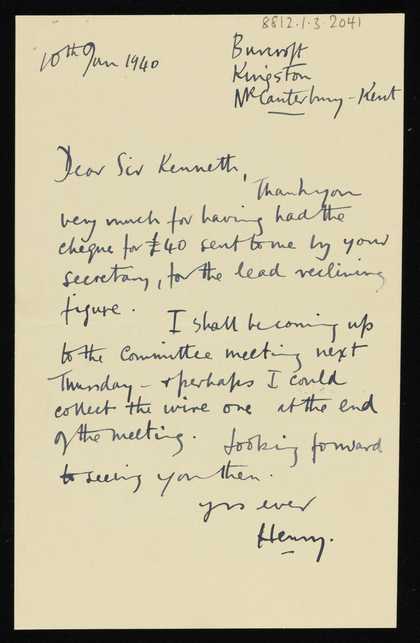 8812.1.3.2041
10th Jan 1940
Burcroft
Kingston
Nr Canterbury - Kent
Dear Sir Kenneth,
Thank you
very much for having had the
cheque for £40 sent to me by your
secretary, for the lead reclining
figure.
I shall be coming up
to the Committee meeting next
Thursday - & perhaps I could
collect the wire one at the end
of the meeting. Looking forward
to seeing you then.
yrs ever
Henry.